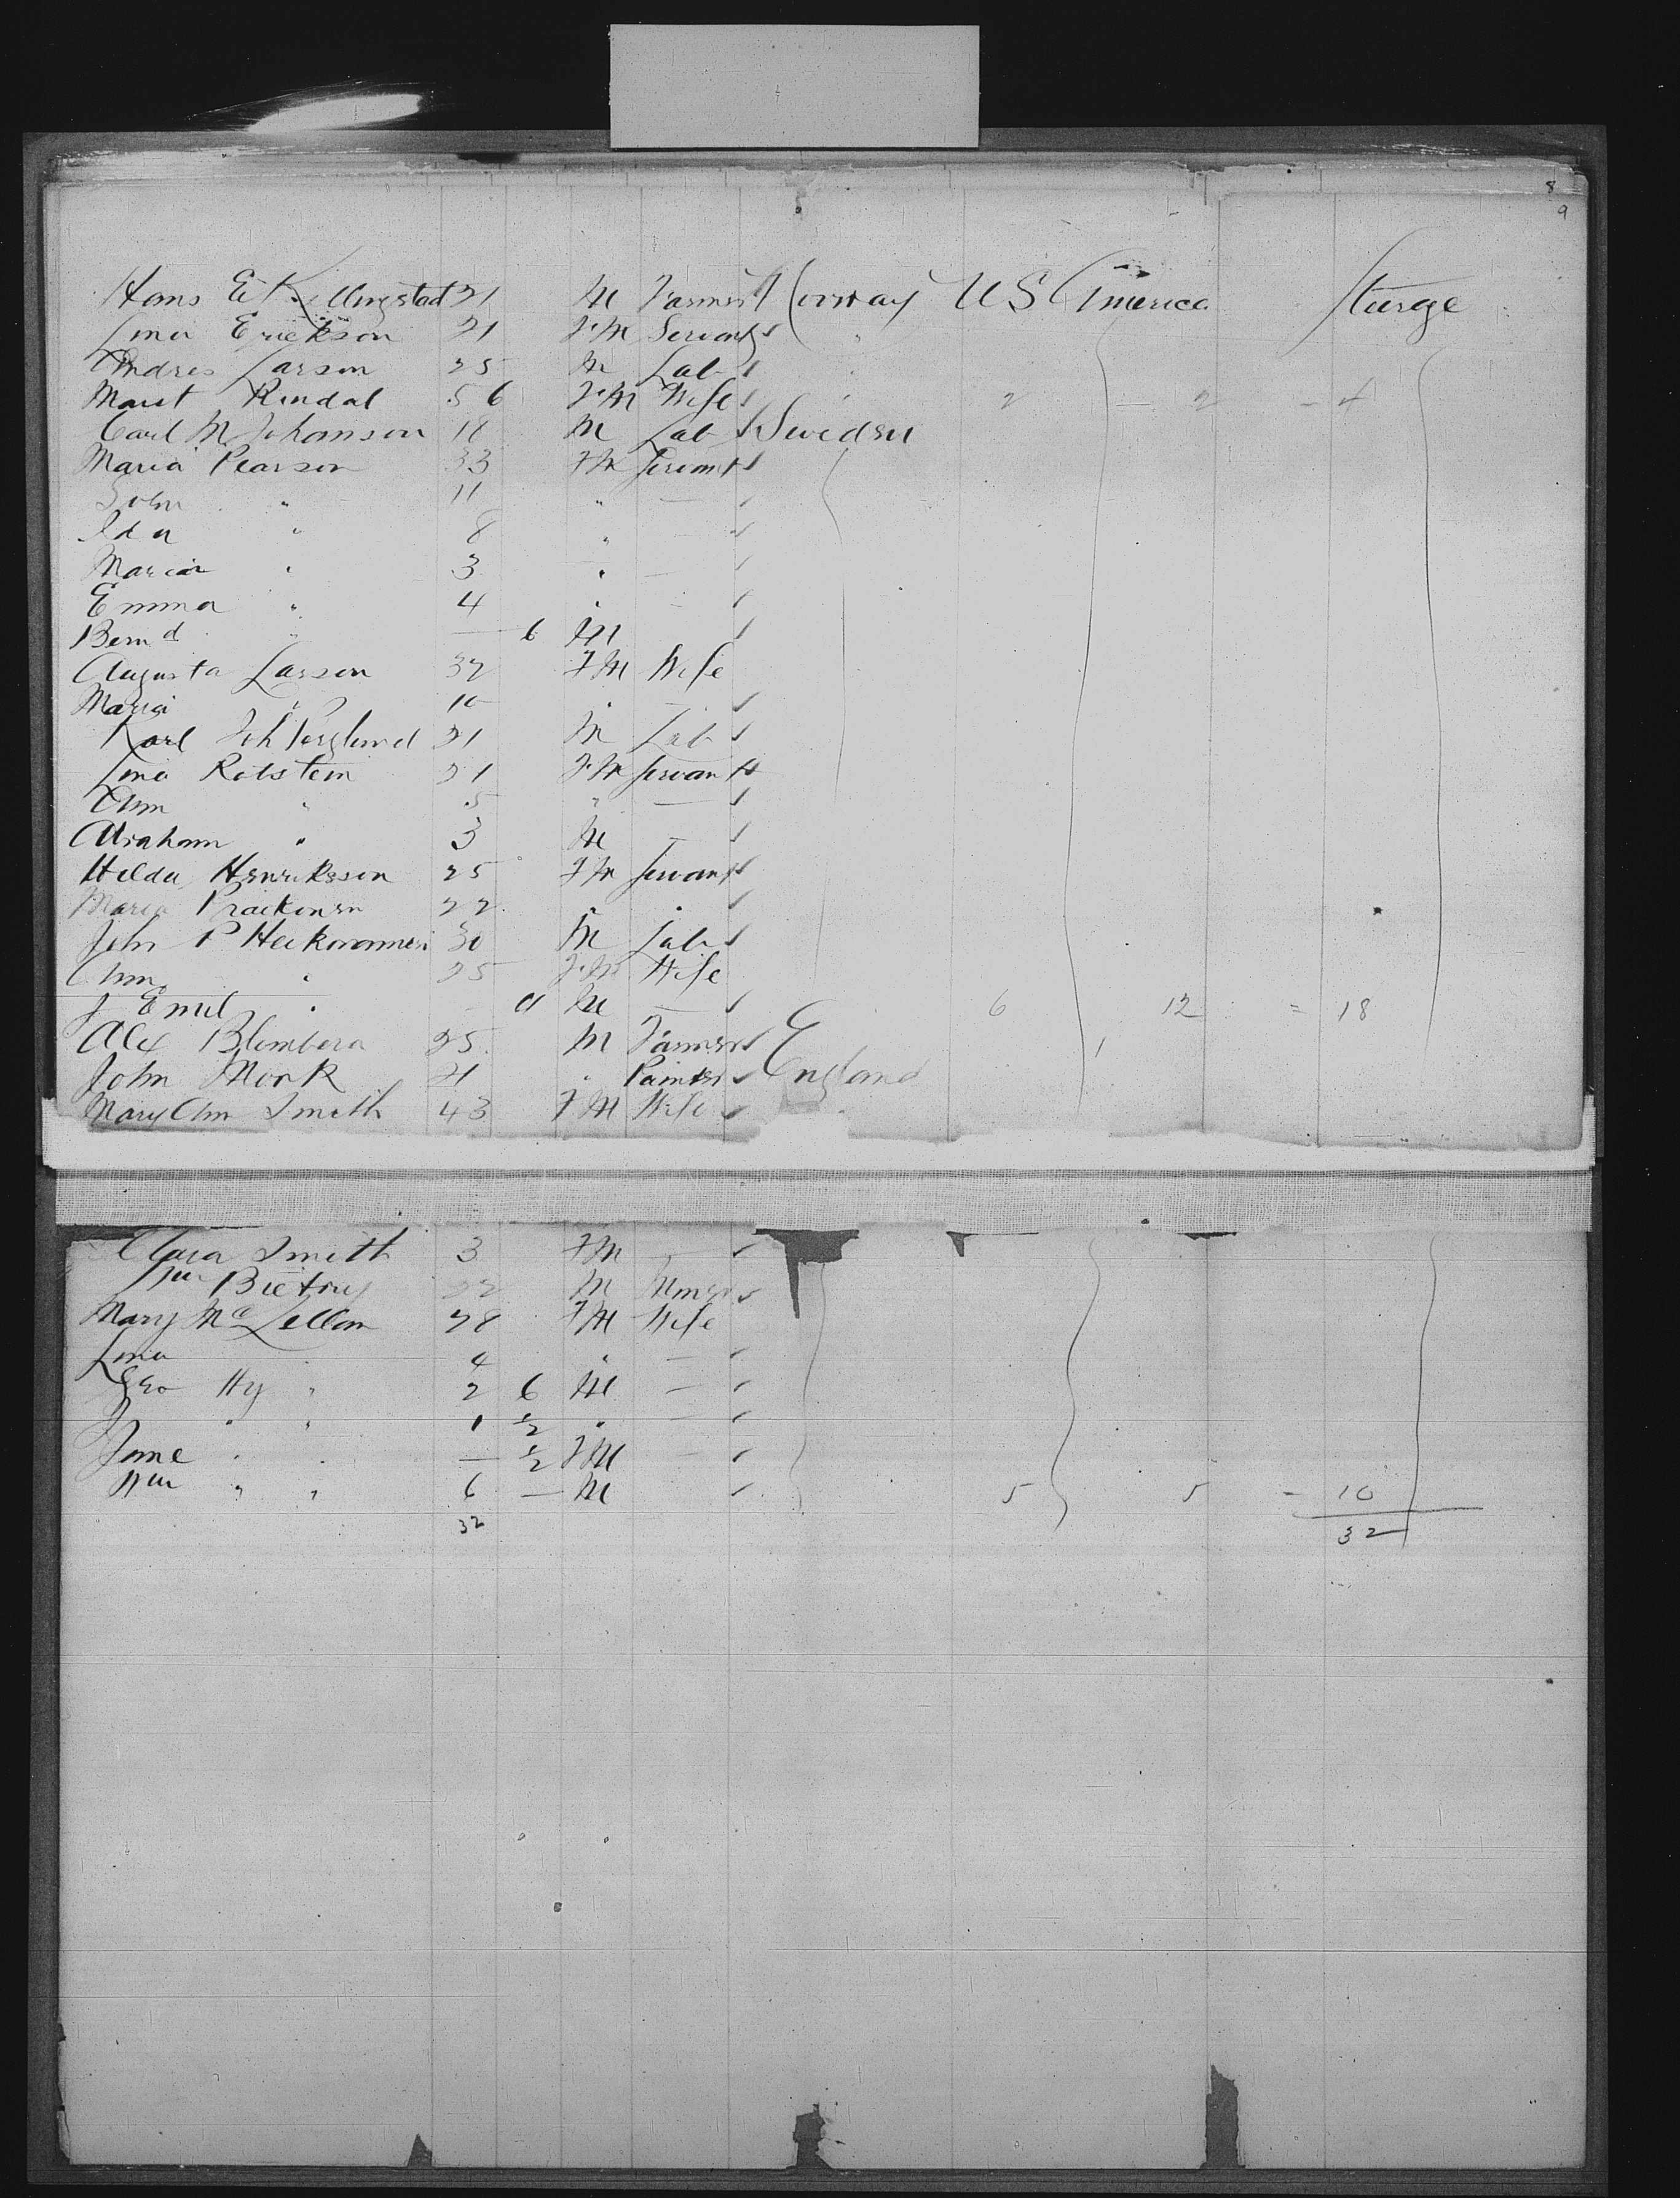 8
9
Hans E Killingstad 21 M Farmer Norway US America Steerge
Lina Erickson 21 FM Servant "
Andres Larson 25 M Lab "
Marit Rindal 56 FM Wife " 2 — 2 = 4
Carl M Johanson 18 M Lab Sweden
Maria Pearson 33 FM Servant
John " 11 " —
Ida " 8 " —
Maria " 3 " —
Emma " 4 " —
Bernd " — 6 M
Augusta Larson 32 FM Wife
Maria " 10 " —
Karl Joh 21 M Lab
Lina Rotstein 21 FM Servant
Ann " 5 " —
Abraham " 3 M —
Hilda Henriksson 25 FM Servant
Maria 22 " "
John P 30 M Lab
Ann " 25 FM Wife
J Emil " 11 M — 6 12 = 18
Alex Blombera 25 M Farmer
John Monk 21 " Painter England
Mary Ann Smith 43 FM Wife
Clara Smith 3 FM —
Wm 22 M Miner
Mary McLellan 28 FM Wife
Lina " 4 " —
Geo Hy " 2 6 M —
J " " 1 1/2 " —
Jane " " — 1/2 FM —
Wm " " 6 — M 5 5 = 10
32 32